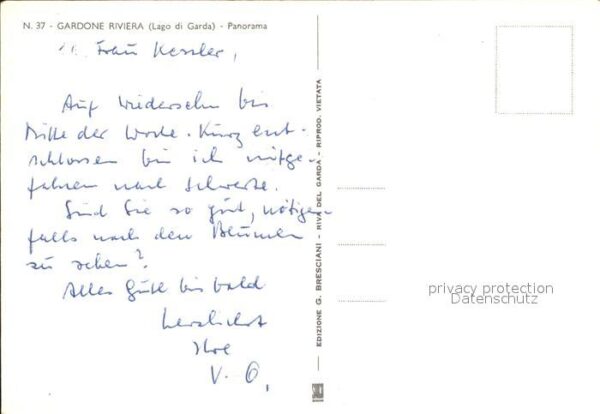 N. 37 - GARDONE RIVIERA (Lago di Garda) - Panorama
Frau Kessler,
Auf Wiedersehn bis
Mitte der Woche. Kurz ent-
schlossen bin ich mitge-
fahren nach Schwerte.
Sind Sie so gut, nötigen
falls nach den Blumen
zu sehen?
Alles Gute bis bald
herzlichst
Ihre
V. O.
EDIZIONE G. BRESCIANI - RIVA DEL GARDA - RIPROD. VIETATA
privacy protection
Datenschutz